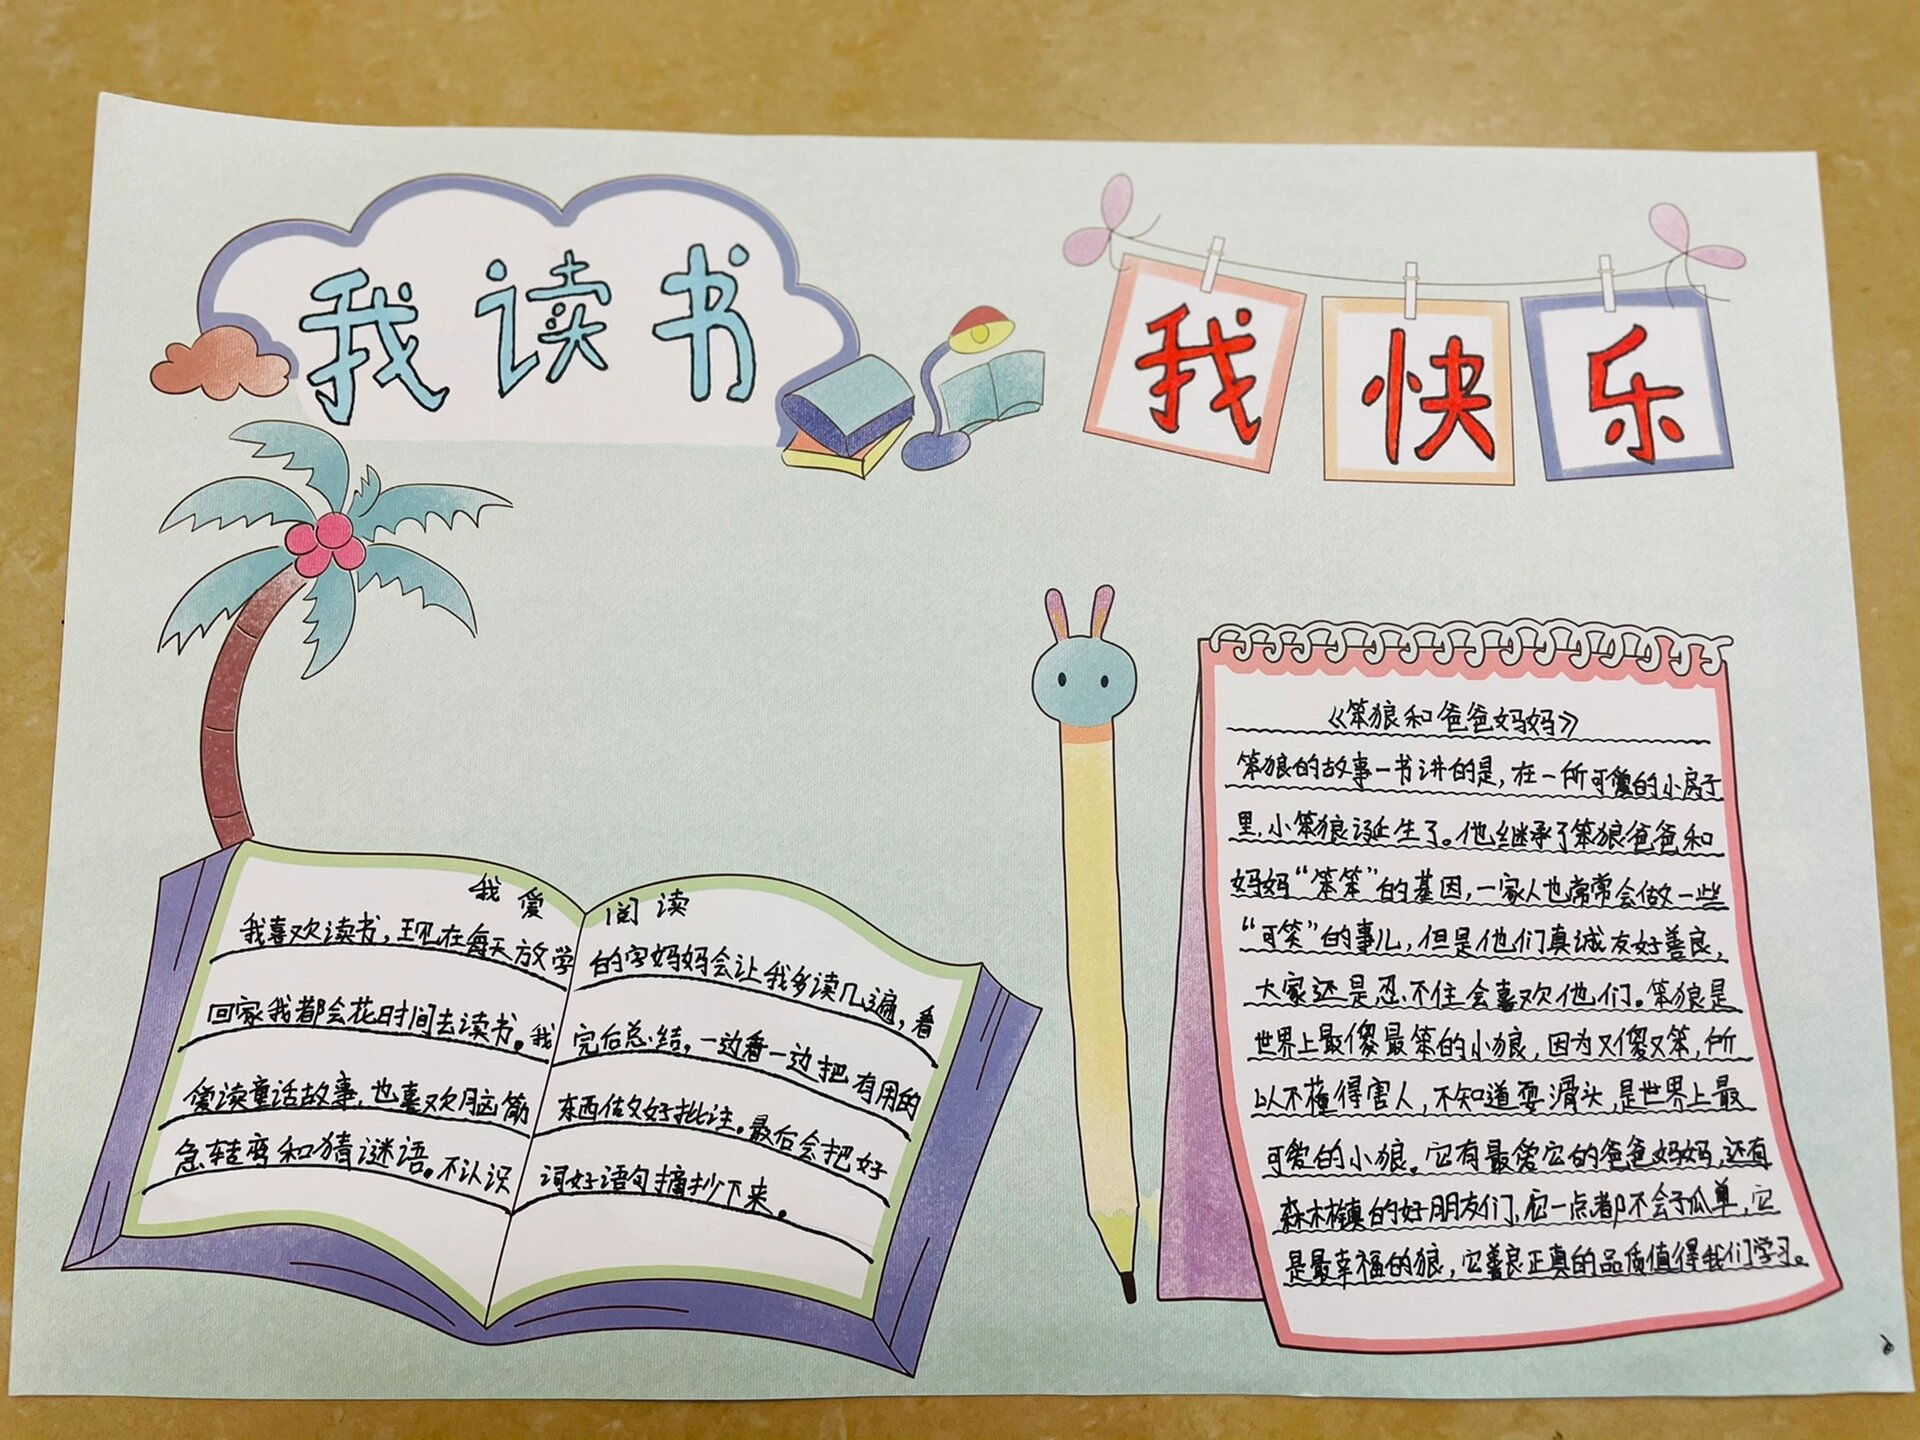 我读书
我快乐
我爱阅读
我喜欢读书，现在每天放学
回家我都会花时间去读书。我
爱读童话故事，也喜欢脑筋
急转弯和猜谜语。不认识
的字妈妈会让我多读几遍，看
完后总结，一边看一边把有用的
东西做好批注。最后会把好
词好语句摘抄下来。
《笨狼和爸爸妈妈》
笨狼的故事一书讲的是，在一所可爱的小房子
里，小笨狼诞生了。他继承了笨狼爸爸和
妈妈“笨笨”的基因，一家人也常常会做一些
“可笑”的事儿，但是他们真诚友好善良，
大家还是忍不住会喜欢他们。笨狼是
世界上最傻最笨的小狼，因为又傻又笨，所
以不懂得害人，不知道耍滑头，是世界上最
可爱的小狼。它有最爱它的爸爸妈妈，还有
森林镇的好朋友们，它一点都不会孤单，它
是最幸福的狼，它善良正真的品质值得我们学习。